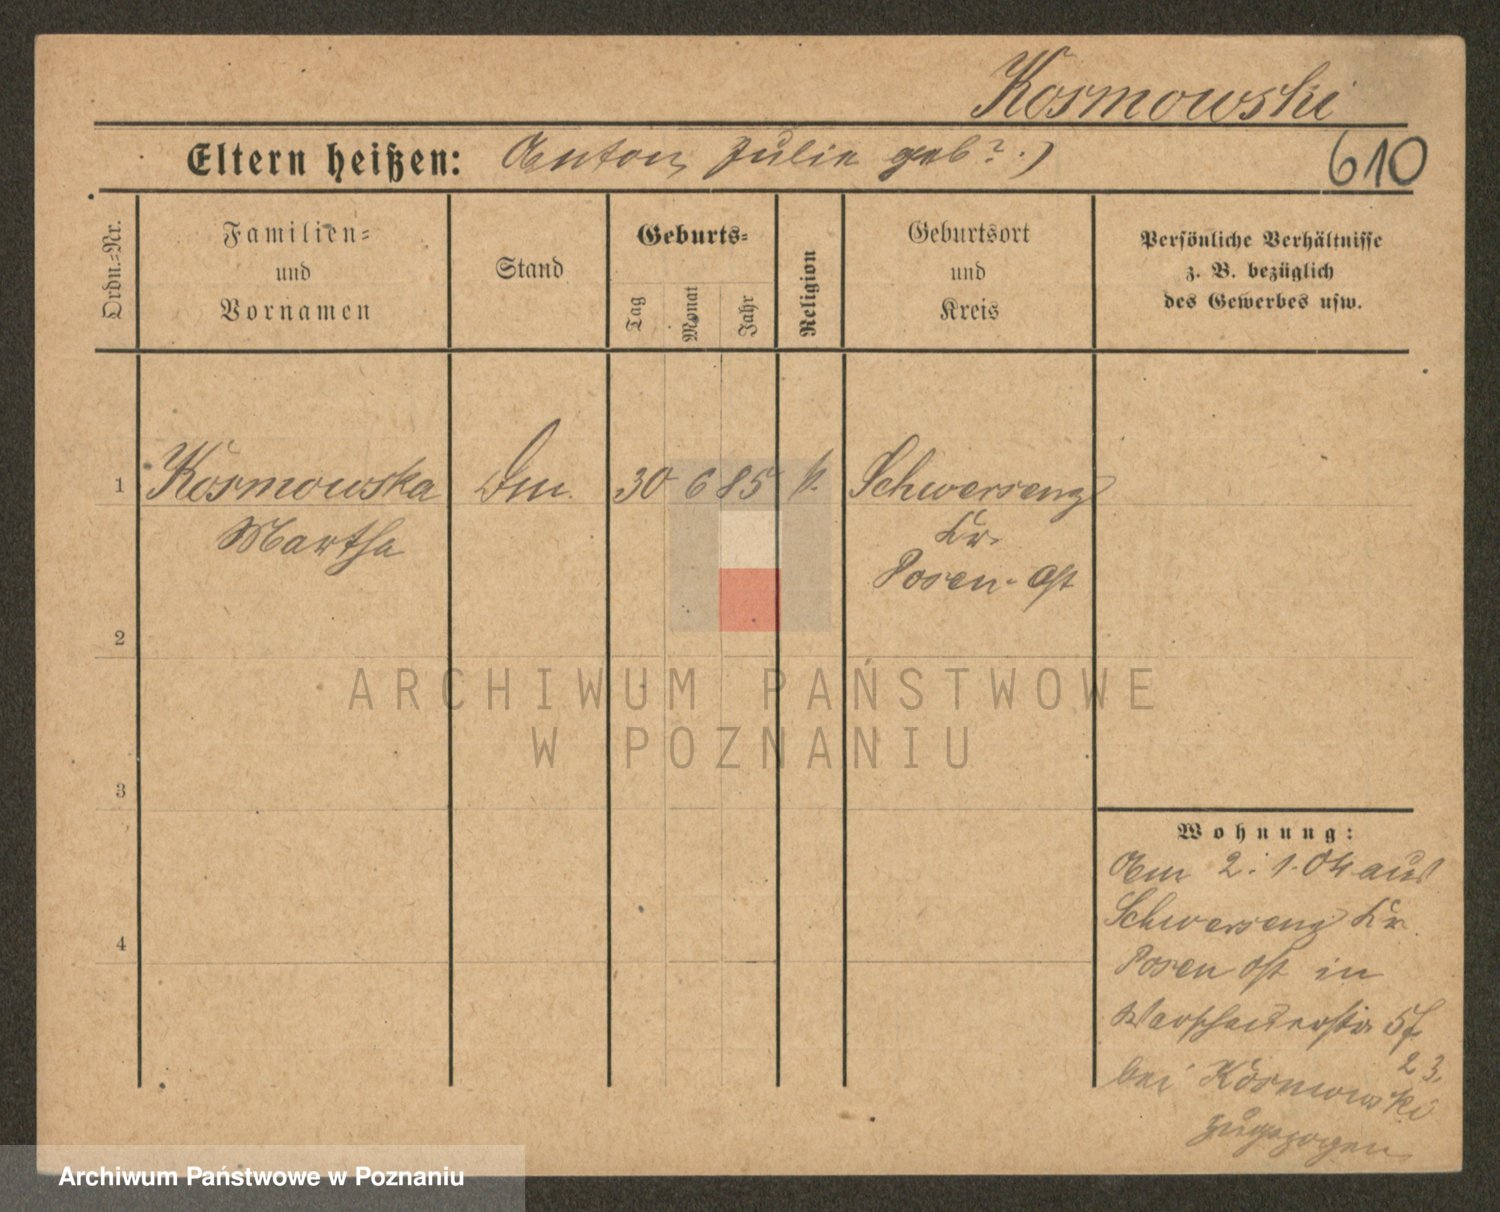 Kosmowski
Eltern heißen: Anton, Julie geb?.)
610
Ordn.-Nr.
Familien-
und
Vornamen
Stand
Geburts-
Tag
Monat
Jahr
Religion
Geburtsort
und
Kreis
Persönliche Verhältnisse
z. B. bezüglich
des Gewerbes usw.
1 Kosmowska 30 6 85 k. Schwersenz
Martha Kr.
Posen-Ost
2
3
4
ARCHIWUM PAŃSTWOWE
W POZNANIU
Wohnung:
Am 2.1.04 aus
Schwersenz Kr.
Posen Ost in
Warschauerstr
23.
bei Kosmowski
zugezogen
Archiwum Państwowe w Poznaniu